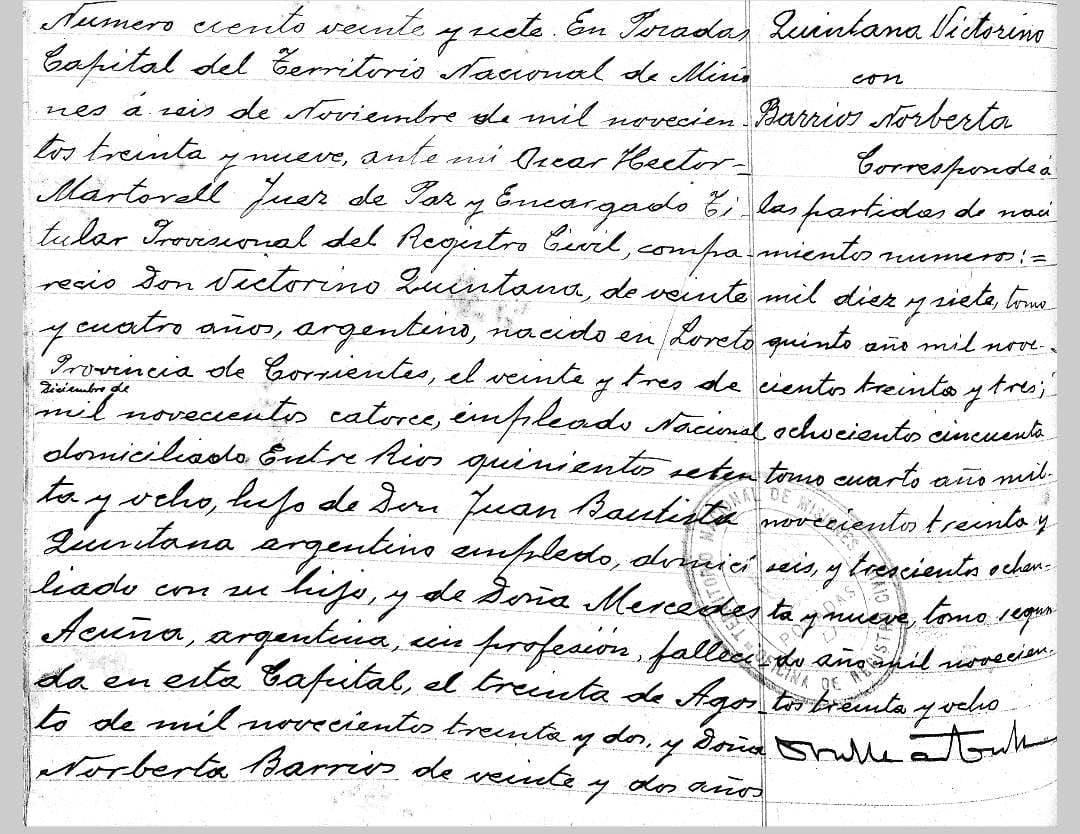 Numero ciento veinte y siete. En Posadas
Capital del Territorio Nacional de Misio
nes á seis de Noviembre de mil novecien-
tos treinta y nueve, ante mi Oscar Hector-
Martorell Juez de Paz y Encargado Ti-
tular Provisional del Registro Civil, compa-
recio Don Victorino Quintana, de veinte
y cuatro años, argentino, nacido en Loreto
Provincia de Corrientes, el veinte y tres de
Diciembre de
mil novecientos catorce, empleado Nacional
domiciliado Entre Rios quinientos seten
ta y ocho, hijo de Don Juan Bautista
Quintana argentino empledo, domici
liado con su hijo, y de Doña Mercedes
Acuña, argentina, sin profesión, falleci-
da en esta Capital, el treinta de Agos-
to de mil novecientos treinta y dos, y Doña
Norberta Barrios de veinte y dos años
Quintana Victorino
con
Barrios Norberta
Corresponde á
las partidas de naci
mientos numeros:=
mil diez y siete, tomo
quinto año mil nove-
cientos treinta y tres;
ochocientos cincuenta
tomo cuarto año mil-
novecientos treinta y
seis, y trescientos ochen-
ta y nueve, tomo segun
do año mil novecien-
tos treinta y ocho
TERRITORIO NACIONAL DE MISIONES
OFICINA DE REGISTRO CIVIL
POSADAS